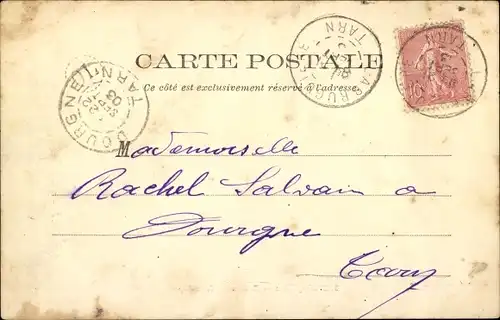 CARTE POSTALE
Ce côté est exclusivement réservé à l'adresse.
DOURGNE TARN
03
TARN
10
Mademoiselle
Rachel Salvain a
Dourgne
Tarn